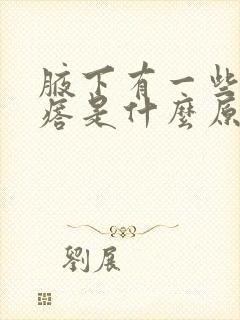 腋下有一些
痞是什麼原
劉展